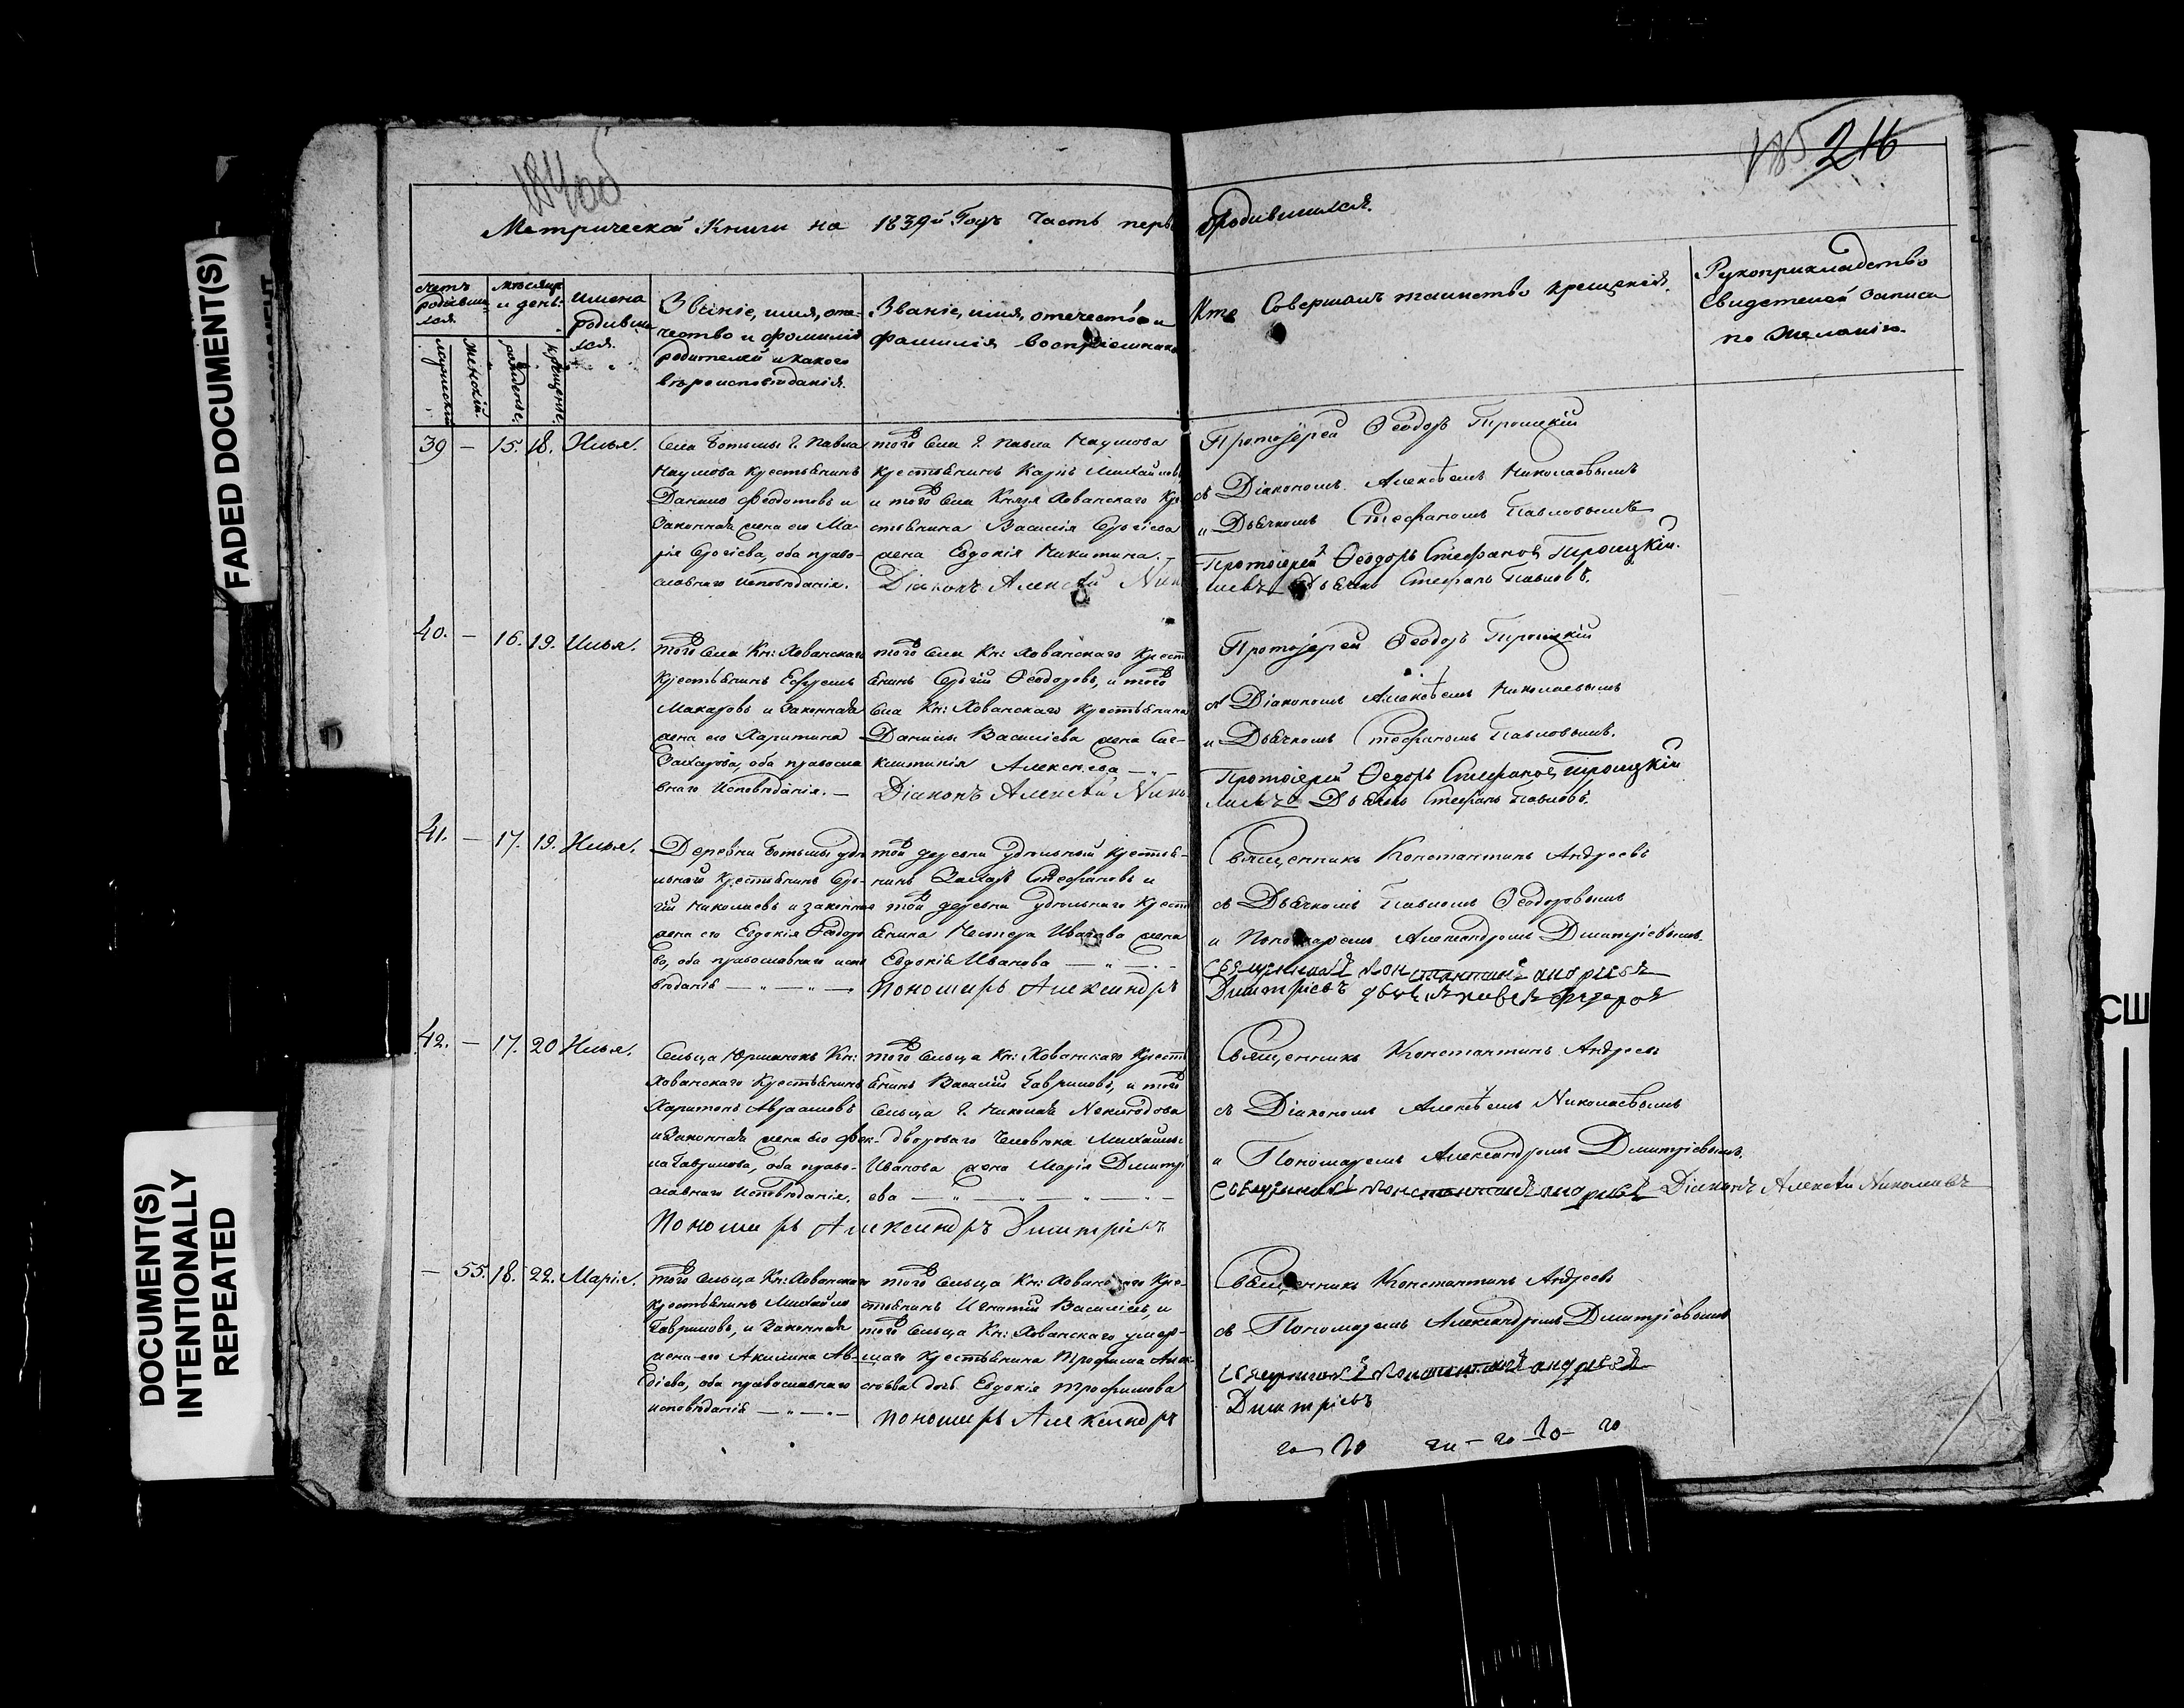 FADED DOCUMENT(S)
DOCUMENT(S)
INTENTIONALLY
REPEATED
184об
185 216
Метрической Книги на 1839й Годъ Часть перв
ородившихся.
Счетъ родившихся.
мужеска
женскій.
Мѣсяцъ и день.
рожденіе,
крещеніе,
имена родившихся.
Званіе, имя, отечество и фамилія родителей и какого вѣроисповѣданія.
Званіе, имя, отечество и фамилія воспріемник
Кто Совершалъ таинство крещенія.
Рукоприкладство Свидетелей Записи по Желанію.
39 — 15. 18. Илья.
Села Ботьмы Г. Павла
Наумова Крестьянинъ
Данило Феодотовъ и
Законная жена его Ма-
рія Сергіева, оба право-
славнаго исповѣданія.
того Села Г. Павла Наумова
крестьянинъ Карпъ Михайловъ
и того Села Князя Хованскаго Кре
стьянина Василія Сергіева
жена Евдокія Никитина.
Діаконъ Алексѣй Ник
Протоіерей Ѳеодоръ Троицкій
съ Діакономъ Алексѣемъ Николаевымъ
и Дьячкомъ Стефаномъ Павловымъ
Протоіерей Ѳеодоръ Стефановъ Троицкій.
лаевъ Дьячекъ Стефанъ Павловъ.
40. — 16. 19. Илья.
того Села Кн: Хованскаго
Крестьянинъ Ефремъ
Макаровъ и Законная
жена его Харитина
Захарова, оба правосла
внаго Исповѣданія. —
того Села Кн: Хованскаго Крест
янинъ Сергій Ѳеодоровъ, и того
Села Кн: Хованскаго Крестьянина
Данилы Василіева жена Син-
клитикія Алексѣева — „
Діаконъ Алексѣй Нико
Протоіерей Ѳеодоръ Троицкій
съ Діакономъ Алексѣемъ Николаевымъ
и Дьячкомъ Стефаномъ Павловымъ.
Протоіерей Ѳедоръ Стефановъ Троицкій
лаевъ Дьячекъ Стефанъ Павловъ.
41. — 17. 19. Илья.
Деревни Ботьмы удѣ
льнаго Крестьянинъ Сер-
гій Николаевъ и законная
жена его Евдокія Ѳеодоро
ва, оба православнаго испо
вѣданія — „ — „ —
той деревни удѣльный Крестья-
нинъ Захаръ Стефановъ и
той деревни удѣльнаго Крест
янина Нестера Иванова жена
Евдокія Иванова — „ — „ —
Пономарь Александръ
Священникъ Константинъ Андреевъ
съ Дьячкомъ Павломъ Ѳеодоровымъ
и Пономаремъ Александромъ Димитріевымъ.
Священникъ Константинъ Андреевъ
Димитріевъ дьячекъ Павелъ Федоровъ
42. — 17. 20 Илья.
Сельца Юрманокъ Кн:
Хованскаго Крестьянинъ
Харитонъ Авраамовъ
и Законная жена его Фек-
ла Гаврилова, оба право-
славнаго Исповѣданія.
того Сельца Кн: Хованскаго Крест
янинъ Василій Гавриловъ, и того
Сельца Г. Николая
двороваго Человѣка Михайлы
Иванова жена Марія Димитрі
ева — „ — „ — „ —
Пономарь Александръ Димитріевъ
Священникъ Константинъ Андреевъ
съ Діакономъ Алексѣемъ Николаевымъ
и Пономаремъ Александромъ Димитріевымъ.
Священникъ Константинъ Андреевъ Діаконъ Алексѣй Николаевъ
— 55. 18. 22. Марія.
того Сельца Кн: Хованскаго
Крестьянинъ Михайло
Гавриловъ, и Законная
жена его Акилина Ав-
діева, оба православнаго
исповѣданія — „ — „ —
того Сельца Кн: Хованскаго Кре-
стьянинъ Игнатій Василіевъ, и
того Сельца Кн: Хованскаго умер-
шаго Крестьянина Трофима
дочь Евдокія Трофимова
Пономарь Александръ
Священникъ Константинъ Андреевъ
съ Пономаремъ Александромъ Димитріевымъ
Священникъ Константинъ Андреевъ
Димитріевъ